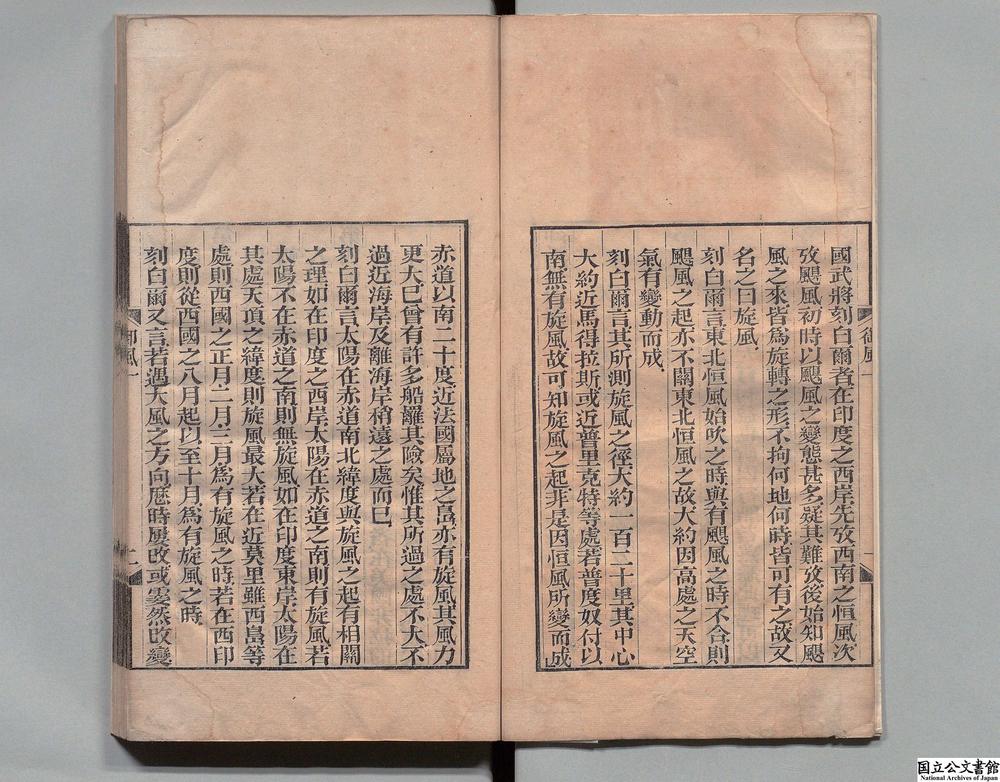 國武將刻白爾者在印度之西岸先攷西南之恒風次
攷颶風初時以颶風之變態甚多疑其難攷後始知颶
風之來皆為旋轉之形不拘何地何時皆可有之故又
名之曰旋風
刻白爾言東北恒風始吹之時與有颶風之時不合則
颶風之起亦不關東北恒風之故大約因高處之天空
氣有變動而成
刻白爾言其所測旋風之徑大約一百二十里其中心
大約近馬得拉斯或近普里克特等處若普度奴付以
南無有旋風故可知旋風之起非是因恒風所變而成
御風一
一
赤道以南二十度近法國屬地之島亦有旋風其風力
更大已曾有許多船罹其險矣惟其所過之處不大不
過近海岸及離海岸稍遠之處而已
刻白爾言太陽在赤道南北緯度與旋風之起有相關
之理如在印度之西岸太陽在赤道之南則有旋風若
太陽不在赤道之南則無旋風如在印度東岸太陽在
其處天頂之緯度則旋風最大若在近莫里雖西島等
處則西國之正月二月三月為有旋風之時若在西印
度則從西國之八月起以至十月為有旋風之時
刻白爾又言若遇大風之方向歷時屢改或霎然改變
御風一
二
国立公文書館
National Archives of Japan